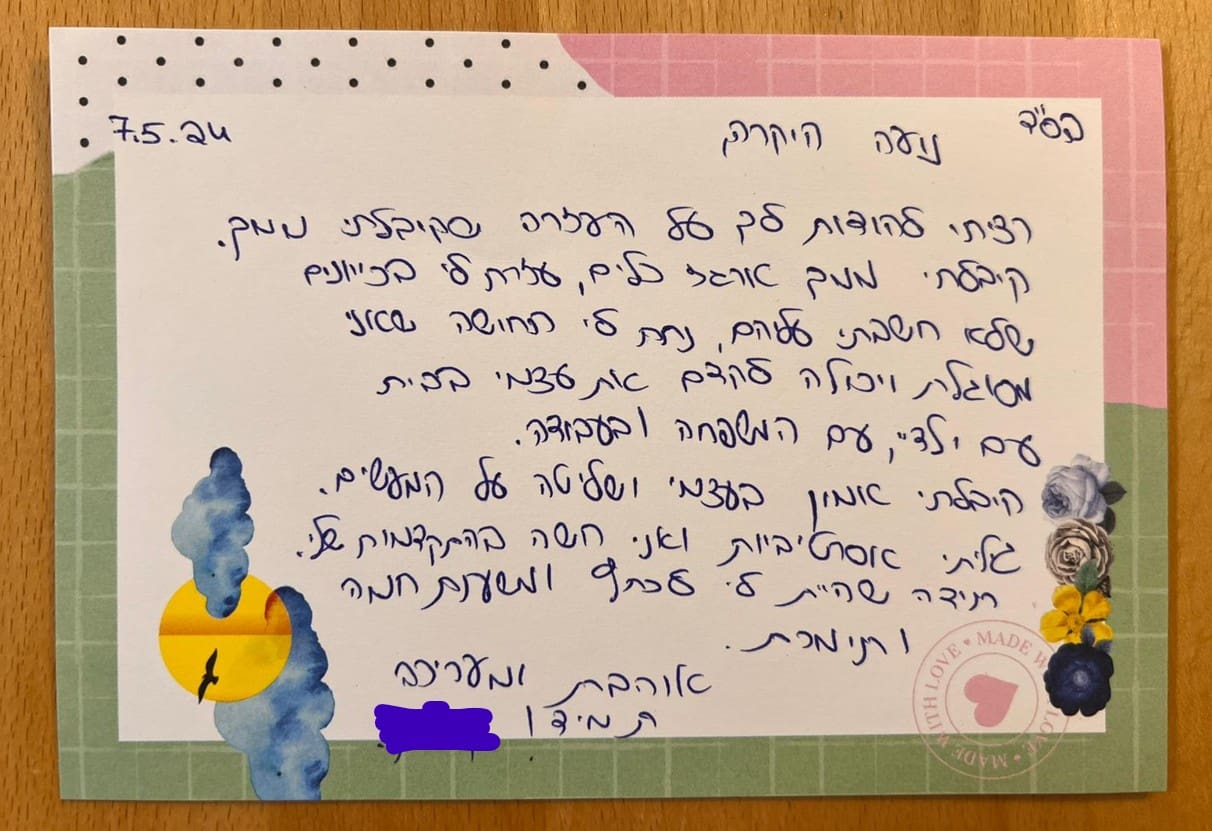 בס"ד
7.5.24
נועה היקרה,
רציתי להודות לך על העזרה שקיבלתי ממך.
קיבלתי ממך ארגז כלים, עזרת לי בכיוונים
שלא חשבתי עליהם, נתת לי תחושה שאני
מסוגלת ויכולה לקדם את עצמי בבית
עם ילדיי, עם המשפחה ובעבודה.
קיבלתי אמון בעצמי ושליטה על המעשים.
גליתי אסרטיביות ואני חשה בהתקדמות שלי.
תודה שהיית לי לכתף ומשענת חמה
ותומכת.
אוהבת ומעריכה
תמיד
MADE WITH LOVE • MADE WITH LOVE •